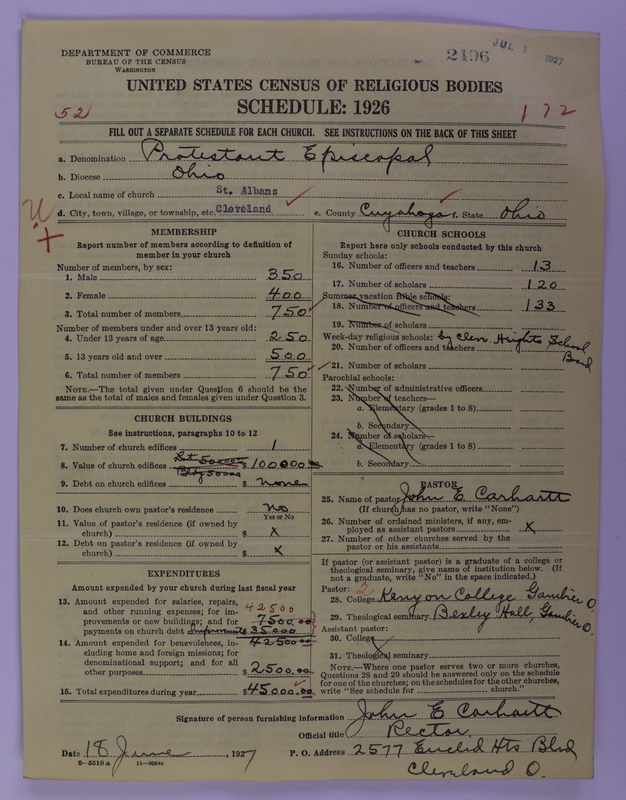 DEPARTMENT OF COMMERCE
BUREAU OF THE CENSUS
WASHINGTON
2496 JUL 1 1927
UNITED STATES CENSUS OF RELIGIOUS BODIES
SCHEDULE: 1926
52
172
FILL OUT A SEPARATE SCHEDULE FOR EACH CHURCH. SEE INSTRUCTIONS ON THE BACK OF THIS SHEET
a. Denomination Protestant Episcopal
b. Diocese Ohio
c. Local name of church St. Albans
d. City, town, village, or township, etc. Cleveland e. County Cuyahoga f. State Ohio
MEMBERSHIP
Report number of members according to definition of
member in your church
Number of members, by sex:
1. Male 350
2. Female 400
3. Total number of members 750
Number of members under and over 13 years old:
4. Under 13 years of age 250
5. 13 years old and over 500
6. Total number of members 750
NOTE.—The total given under Question 6 should be the
same as the total of males and females given under Question 3.
CHURCH BUILDINGS
See instructions, paragraphs 10 to 12
7. Number of church edifices 1
Lot 50000
8. Value of church edifices $100000
Bldg 50000
9. Debt on church edifices $ none
10. Does church own pastor's residence? no
Yes or No
11. Value of pastor's residence (if owned by
church) $ x
12. Debt on pastor's residence (if owned by
church) $ x
EXPENDITURES
Amount expended by your church during last fiscal year
13. Amount expended for salaries, repairs,
and other running expenses; for im- 42500
provements or new buildings; and for 7500.00
payments on church debt Improvements 35000
14. Amount expended for benevolences, in- 42500.00
cluding home and foreign missions; for
denominational support; and for all
other purposes $2500.00
15. Total expenditures during year $45000.00
CHURCH SCHOOLS
Report here only schools conducted by this church
Sunday schools:
16. Number of officers and teachers 13
17. Number of scholars 120
Summer vacation Bible schools:
18. Number of officers and teachers 133
19. Number of scholars
Week-day religious schools: by Clev. Heights School Board
20. Number of officers and teachers
21. Number of scholars
Parochial schools:
22. Number of administrative officers
23. Number of teachers—
a. Elementary (grades 1 to 8)
b. Secondary
24. Number of scholars—
a. Elementary (grades 1 to 8)
b. Secondary
PASTOR
25. Name of pastor John E. Carhartt
(If church has no pastor, write "None")
26. Number of ordained ministers, if any, em-
ployed as assistant pastors x
27. Number of other churches served by the
pastor or his assistants
If pastor (or assistant pastor) is a graduate of a college or
theological seminary, give name of institution below. (If
not a graduate, write "No" in the space indicated.)
Pastor: 2
28. College Kenyon College Gambier O.
29. Theological seminary Bexley Hall, Gambier O.
Assistant pastor:
30. College
31. Theological seminary
NOTE.—Where one pastor serves two or more churches,
Questions 28 and 29 should be answered only on the schedule
for one of the churches; on the schedules for the other churches,
write "See schedule for church."
Signature of person furnishing information John E Carhartt
Official title Rector
Date 18 June, 1927 P. O. Address 2577 Euclid Hts Blvd
8—5518 a Cleveland O.